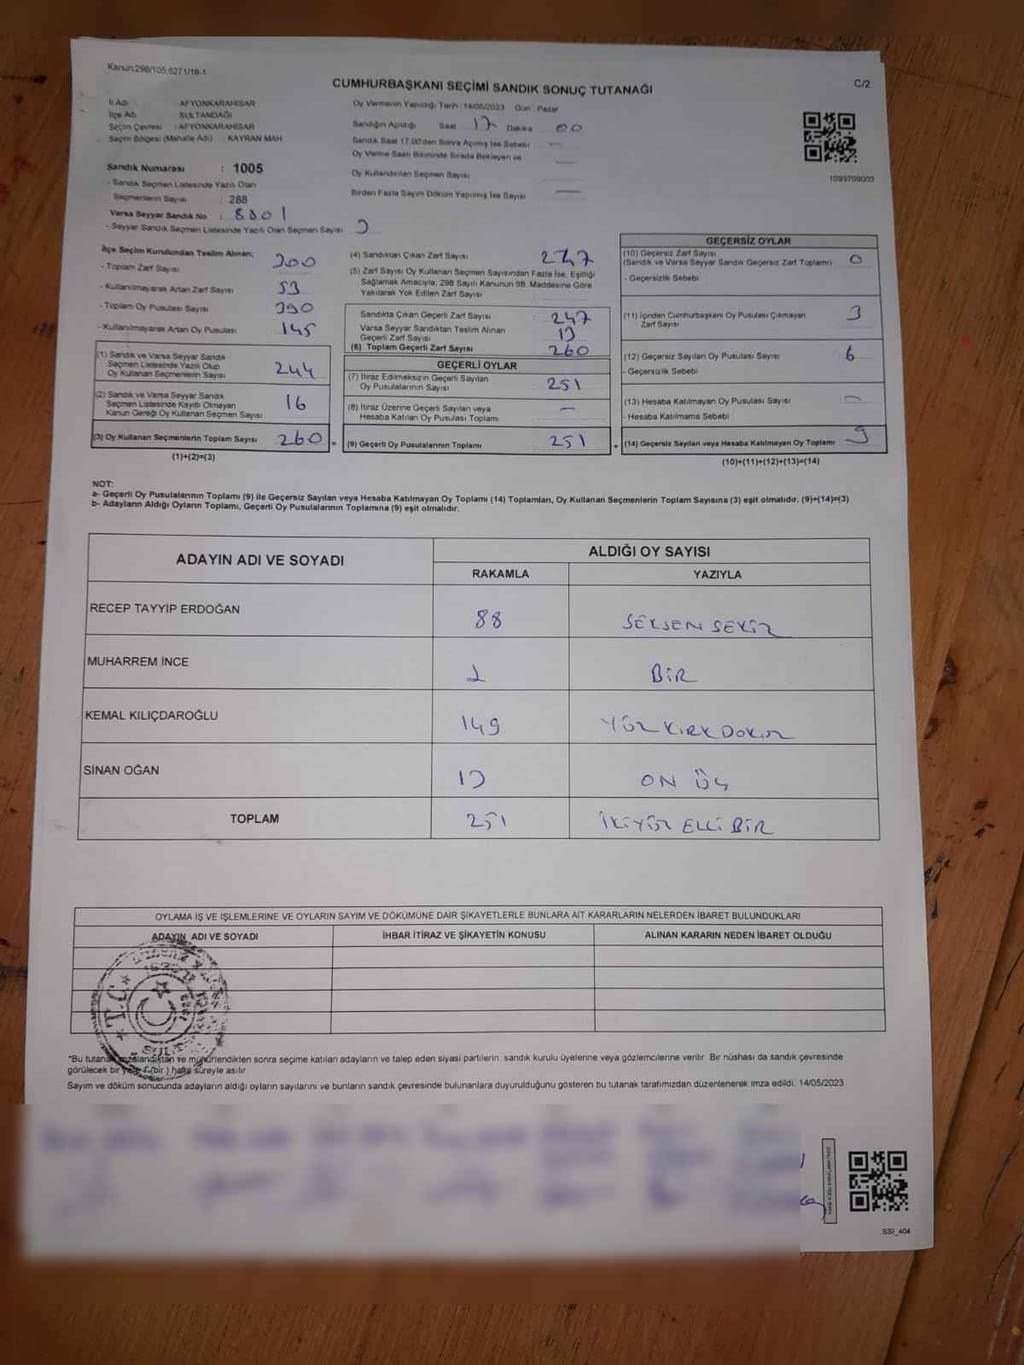 Kanun:298/105,6271/18-1
CUMHURBAŞKANI SEÇİMİ SANDIK SONUÇ TUTANAĞI
C/2
İl Adı : AFYONKARAHİSAR
İlçe Adı : SULTANDAĞI
Seçim Çevresi : AFYONKARAHİSAR
Seçim Bölgesi (Mahalle Adı) : KAYRAN MAH
Sandık Numarası : 1005
- Sandık Seçmen Listesinde Yazılı Olan
Seçmenlerin Sayısı : 288
Varsa Seyyar Sandık No : 8801
- Seyyar Sandık Seçmen Listesinde Yazılı Olan Seçmen Sayısı
Oy Vermenin Yapıldığı Tarih: 14/05/2023 Gün: Pazar
Sandığın Açıldığı Saat 17 Dakika 00
Sandık Saat 17.00'den Sonra Açılmış İse Sebebi —
Oy Verme Saati Bitiminde Sırada Bekleyen ve
Oy Kullandırılan Seçmen Sayısı —
Birden Fazla Sayım Döküm Yapılmış İse Sayısı —
1093709003
İlçe Seçim Kurulundan Teslim Alınan;
- Toplam Zarf Sayısı 300
- Kullanılmayarak Artan Zarf Sayısı 53
- Toplam Oy Pusulası Sayısı 390
- Kullanılmayarak Artan Oy Pusulası 145
(1) Sandık ve Varsa Seyyar Sandık
Seçmen Listesinde Yazılı Olup
Oy Kullanan Seçmenlerin Sayısı 244
(2) Sandık ve Varsa Seyyar Sandık
Seçmen Listesinde Kayıtlı Olmayan
Kanun Gereği Oy Kullanan Seçmen Sayısı 16
(3) Oy Kullanan Seçmenlerin Toplam Sayısı 260 =
(1)+(2)=(3)
(4) Sandıktan Çıkan Zarf Sayısı 247
(5) Zarf Sayısı Oy Kullanan Seçmen Sayısından Fazla İse, Eşitliği
Sağlamak Amacıyla, 298 Sayılı Kanunun 98. Maddesine Göre
Yakılarak Yok Edilen Zarf Sayısı
Sandıkta Çıkan Geçerli Zarf Sayısı 247
Varsa Seyyar Sandıktan Teslim Alınan
Geçerli Zarf Sayısı 13
(6) Toplam Geçerli Zarf Sayısı 260
GEÇERLİ OYLAR
(7) İtiraz Edilmeksizin Geçerli Sayılan
Oy Pusulalarının Sayısı 251
(8) İtiraz Üzerine Geçerli Sayılan veya
Hesaba Katılan Oy Pusulası Toplamı —
(9) Geçerli Oy Pusulalarının Toplamı 251 +
GEÇERSİZ OYLAR
(10) Geçersiz Zarf Sayısı
(Sandık ve Varsa Seyyar Sandık Geçersiz Zarf Toplamı) 0
- Geçersizlik Sebebi
(11) İçinden Cumhurbaşkanı Oy Pusulası Çıkmayan
Zarf Sayısı 3
(12) Geçersiz Sayılan Oy Pusulası Sayısı 6
- Geçersizlik Sebebi
(13) Hesaba Katılmayan Oy Pusulası Sayısı —
- Hesaba Katılmama Sebebi
(14) Geçersiz Sayılan veya Hesaba Katılmayan Oy Toplamı 9
(10)+(11)+(12)+(13)=(14)
NOT:
a- Geçerli Oy Pusulalarının Toplamı (9) ile Geçersiz Sayılan veya Hesaba Katılmayan Oy Toplamı (14) Toplamları, Oy Kullanan Seçmenlerin Toplam Sayısına (3) eşit olmalıdır. (9)+(14)=(3)
b- Adayların Aldığı Oyların Toplamı, Geçerli Oy Pusulalarının Toplamına (9) eşit olmalıdır.
ADAYIN ADI VE SOYADI
ALDIĞI OY SAYISI
RAKAMLA YAZIYLA
RECEP TAYYİP ERDOĞAN 88 SEKSEN SEKİZ
MUHARREM İNCE 1 BİR
KEMAL KILIÇDAROĞLU 149 YÜZ KIRK DOKUZ
SİNAN OĞAN 13 ON ÜÇ
TOPLAM 251 İKİYÜZ ELLİ BİR
OYLAMA İŞ VE İŞLEMLERİNE VE OYLARIN SAYIM VE DÖKÜMÜNE DAİR ŞİKAYETLERLE BUNLARA AİT KARARLARIN NELERDEN İBARET BULUNDUKLARI
ADAYIN ADI VE SOYADI İHBAR İTİRAZ VE ŞİKAYETİN KONUSU ALINAN KARARIN NEDEN İBARET OLDUĞU
T.C.
*Bu tutanak imzalandıktan ve mühürlendikten sonra seçime katılan adayların ve talep eden siyasi partilerin sandık kurulu üyelerine veya gözlemcilerine verilir. Bir nüshası da sandık çevresinde
görülecek bir yere 1 (bir ) hafta süreyle asılır.
Sayım ve döküm sonucunda adayların aldığı oyların sayılarını ve bunların sandık çevresinde bulunanlara duyurulduğunu gösteren bu tutanak tarafımızdan düzenlenerek imza edildi. 14/05/2023
SSI_404